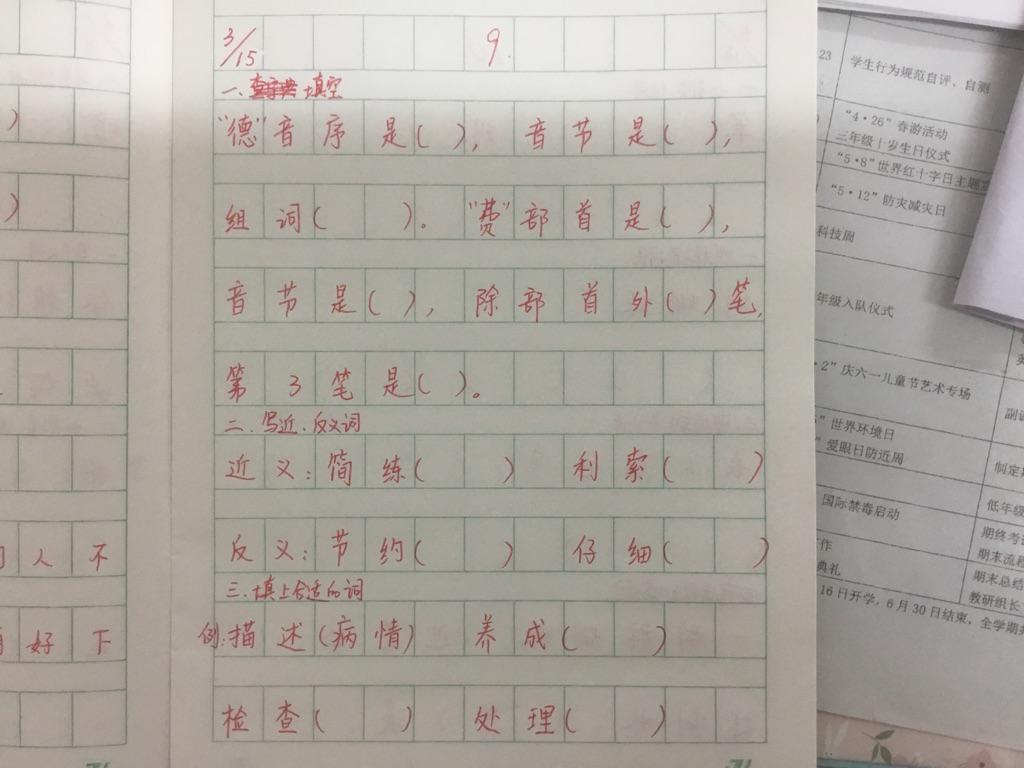 3/15 9.
一、填空
"德"音序是( ), 音节是( ),
组词( )。"费"部首是( ),
音节是( ), 除部首外( )笔,
第3笔是( )。
二、写近、反义词
近义:简练( ) 利索( )
反义:节约( ) 仔细( )
三、填上合适的词
例:描述(病情) 养成( )
检查( ) 处理( )
)
)
人不
好下
23
学生行为规范自评、自测
"4·26"春游活动
三年级十岁生日仪式
"5·8"世界红十字日主题
"5·12"防灾减灾日
科技周
年级入队仪式
·2"庆六一儿童节艺术专场
" 世界环境日
" 爱眼日防近周
国际禁毒启动
作
典礼
16日开学,6月30日结束,全学期
制定
低年级
期终考
期末流程
期末总结
教研组长